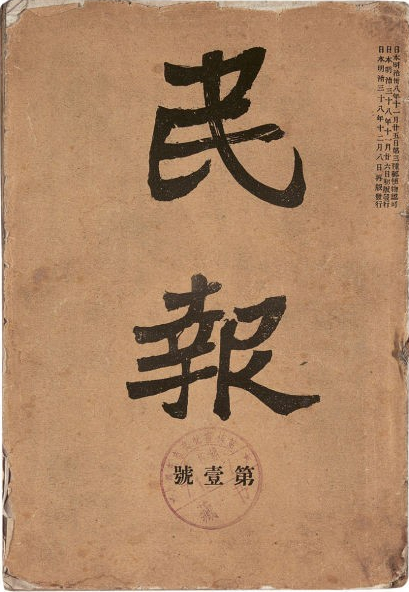 日本明治卅八年十一月廿五日第三種郵便物認可
日本明治三十八年十一月廿六日初版發行
日本明治三十八年十二月八日再版發行
民報
第壹號